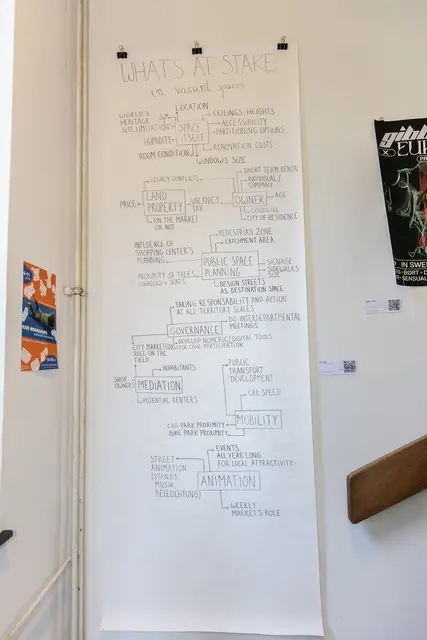 WHATS AT STAKE
in vacant spaces
LOCATION
WORLD'S
HERITAGE
SITE LIMITATIONS
CEILINGS HEIGHTS
ACCESSIBILITY
PARTITIONING OPTIONS
SPACE
ITSELF
HUMIDITY
RENOVATION COSTS
ROOM CONDITION
WINDOWS SIZE
LEGACY CONFLICTS
SHORT TERM RENTAL
INDIVIDUAL/
COMPANY
PRICE
LAND
PROPERTY
VACANCY
TAX
OWNER
AGE
GOODWILL
CITY OF RESIDENCE
ON THE MARKET
OR NOT
PEDESTRIAN ZONE
CATCHMENT AREA
INFLUENCE OF
SHOPPING CENTER'S
PLANNING
PUBLIC SPACE
PLANNING
SIGNAGE
SIDEWALKS
SIZE
PROXIMITY OF TREES,
SHADOW + SEATS
DESIGN STREETS
AS DESTINATION SPACE
TAKING RESPONSABILITY AND ACTION
AT ALL TERRITORY SCALES
GOVERNANCE
DO INTERDEPARTMENTAL
MEETINGS
DEVELOP NUMERIC/DIGITAL TOOLS
FOR CIVIC PARTICIPATION
CITY MARKETING
ROLE ON THE
FIELD
INHABITANTS
SHOP
OWNERS
MEDIATION
POTENTIAL RENTERS
PUBLIC
TRANSPORT
DEVELOPMENT
CAR SPEED
MOBILITY
CAR PARK PROXIMITY
BIKE PARK PROXIMITY
EVENTS
ALL YEAR LONG
FOR LOCAL ATTRACTIVITY
STREET
ANIMATION
(STANDS,
MUSIK
BELEUCHTUNG)
ANIMATION
WEEKLY
MARKET'S ROLE
IN SWE